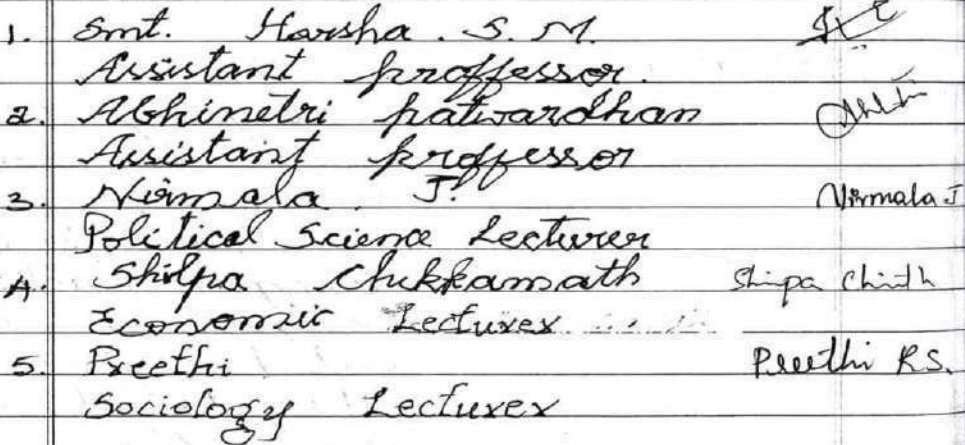 1. Smt. Harsha. S. M.
Assistant proffessor.
2. Abhinetri patwardhan
Assistant proffessor
3. Nirmala. J. Nirmala J
Political Science Lecturer
4. Shilpa Chikkamath
Economic Lecturer
5. Preethi Preethi R S.
Sociology Lecturer